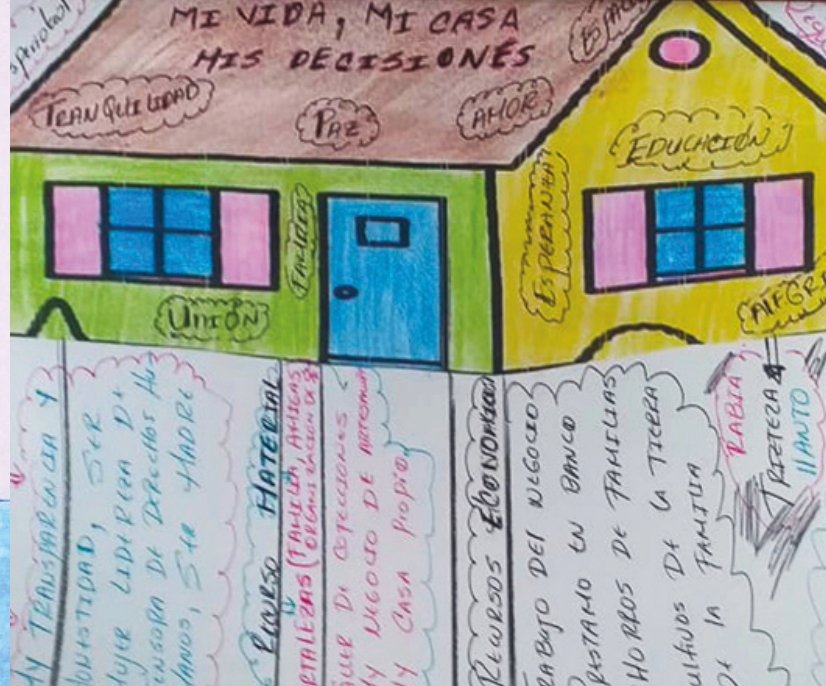 MI VIDA, MI CASA
MIS DECISIONES
TRANQUILIDAD
PAZ
AMOR
EDUCACIÓN
ESPERANZA
FAMILIA
UNIÓN
ALEGRI
MY TRANSPARENCIA Y
HONESTIDAD, SER
MUJER LIDEREZA DE
ENSORA DE DERECHOS HU
MANOS, SER MADRE
RECURSO MATERIAL
RTALEZAS (FAMILIA, AMIGAS
ORGANIZACIÓN DE
LLER DE COFECCIONES
MY NEGOCIO DE
MY CASA PROPIO,
RECURSOS ECONOMICOS
RABAJO DEL NEGOCIO
RESTAMO EN BANCO
HORROS DE FAMILIAS
ULTIVOS DE LA TIERRA
DE LA FAMILIA
RABIA
TRIZTEZA
LLANTO